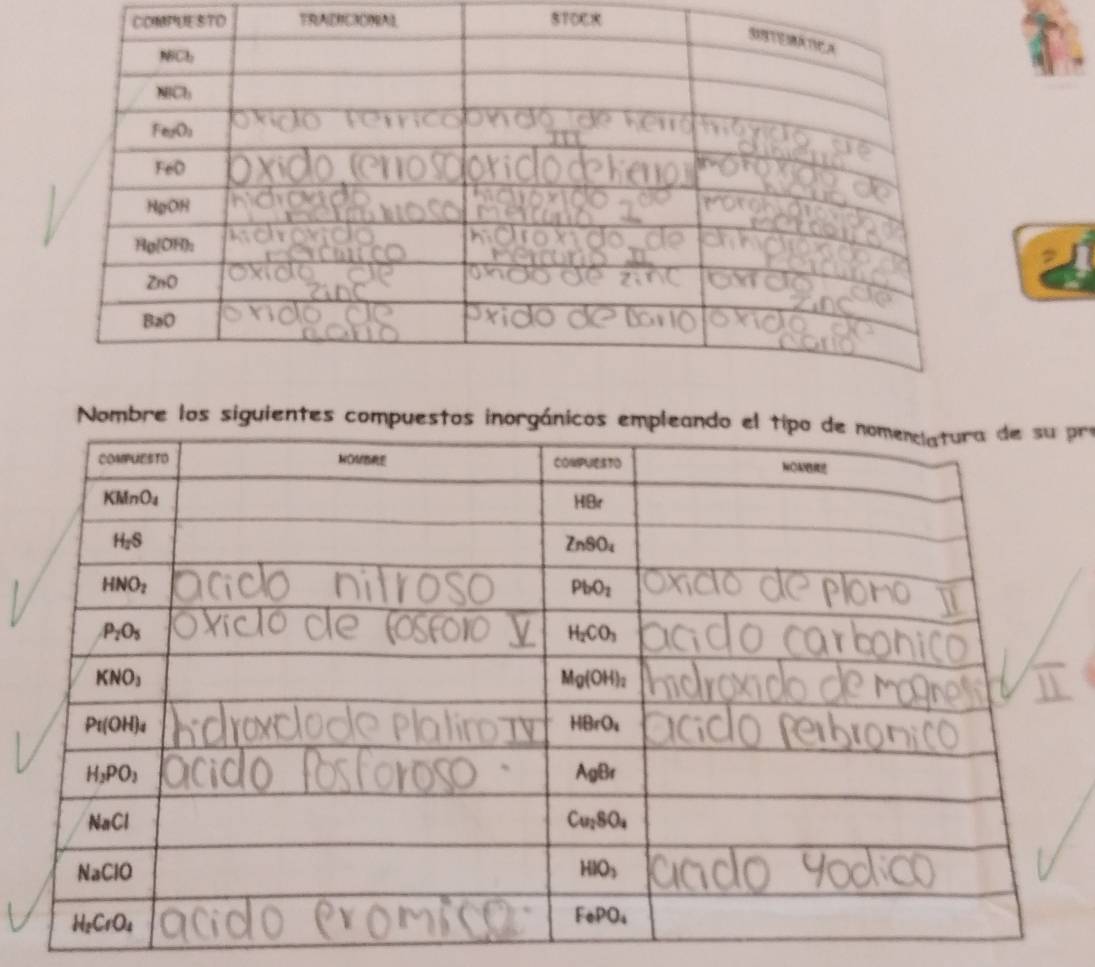 COMPUESTO TRADICIONAL STOCK SISTEMÁTICA
NiCl₂
NiCl₃
Fe₂O₃ oxido ferrico oxido de hierro III trioxido de dihierro
FeO oxido ferroso oxido de hierro monoxido de hierro
HgOH hidroxido mercurioso hidroxido de mercurio I monohidroxido de mercurio
Hg(OH)₂ hidroxido mercurico hidroxido de mercurio II dihidroxido de mercurio
ZnO oxido de zinc oxido de zinc oxido de zinc
BaO oxido de bario oxido de bario oxido de bario
Nombre los siguientes compuestos inorgánicos empleando el tipo de nomenclatura de su pr
COMPUESTO NOMBRE COMPUESTO NOMBRE
KMnO₄ HBr
H₂S ZnSO₄
HNO₂ acido nitroso PbO₂ oxido de plomo II
P₂O₅ oxido de fosforo V H₂CO₃ acido carbonico
KNO₃ Mg(OH)₂ hidroxido de magnesio II
Pt(OH)₄ hidroxdode platino IV HBrO₄ acido perbromico
H₃PO₃ acido fosforoso. AgBr
NaCl Cu₂SO₄
NaClO HIO₃ acido yodico
H₂CrO₄ acido cromico. FePO₄